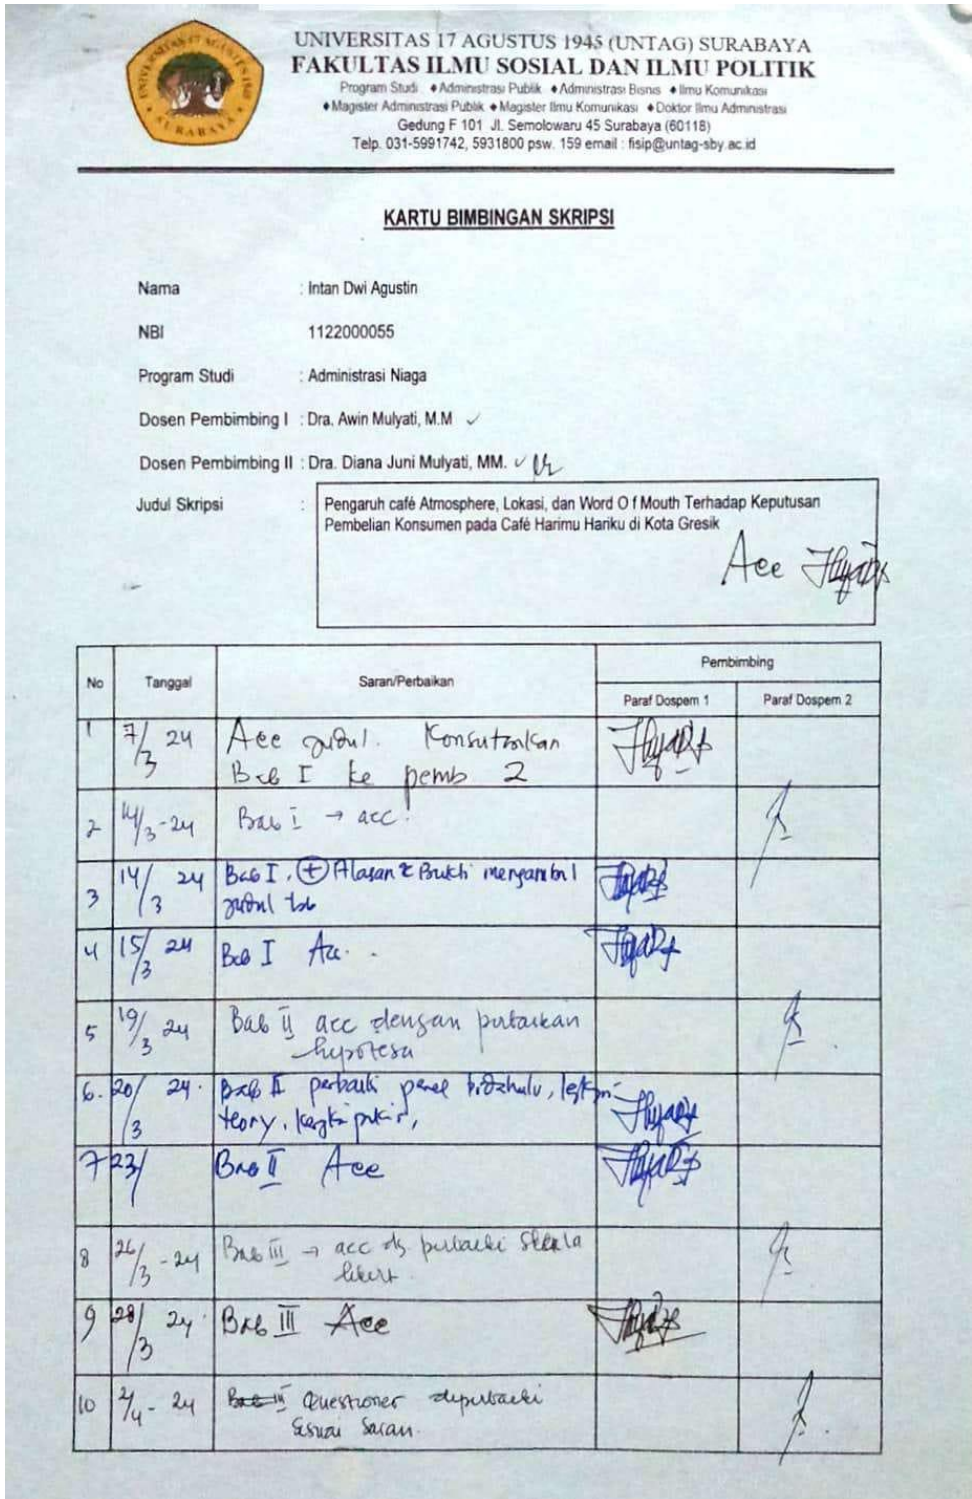 UNIVERSITAS 17 AGUSTUS 1945
SURABAYA
UNIVERSITAS 17 AGUSTUS 1945 (UNTAG) SURABAYA
FAKULTAS ILMU SOSIAL DAN ILMU POLITIK
Program Studi ♦Administrasi Publik ♦Administrasi Bisnis ♦Ilmu Komunikasi
♦Magister Administrasi Publik ♦Magister Ilmu Komunikasi ♦Doktor Ilmu Administrasi
Gedung F 101 Jl. Semolowaru 45 Surabaya (60118)
Telp. 031-5991742, 5931800 psw. 159 email : fisip@untag-sby.ac.id
KARTU BIMBINGAN SKRIPSI
Nama : Intan Dwi Agustin
NBI 1122000055
Program Studi : Administrasi Niaga
Dosen Pembimbing I : Dra. Awin Mulyati, M.M ✓
Dosen Pembimbing II : Dra. Diana Juni Mulyati, MM. ✓
Judul Skripsi : Pengaruh café Atmosphere, Lokasi, dan Word O f Mouth Terhadap Keputusan
Pembelian Konsumen pada Café Harimu Hariku di Kota Gresik
Acc
No Tanggal Saran/Perbaikan Pembimbing
Paraf Dospem 1 Paraf Dospem 2
1 7/3 24 Acc judul. Konsultasikan
Bab I ke pemb 2
2 14/3-24 Bab I → acc.
3 14/3 24 Bab I, + Alasan & Bukti mengambil
judul tsb
4 15/3 24 Bab I Acc.
5 19/3 24 Bab II acc dengan perbaikan
hypotesa
6. 20/3 24. Bab II perbaiki penel terdahulu,
teory,
7 23/ Bab II Acc
8 26/3 - 24 Bab III → acc dg perbaiki Skala
likert.
9 28/3 24 Bab III Acc
10 2/4 - 24 Questioner diperbaiki
sesuai saran.